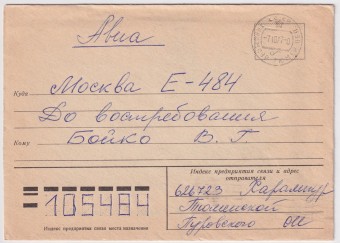 Авиа
Куда Москва Е-484
До востребования
Кому Бойко В. Г.
Индекс предприятия связи и адрес
отправителя
626723
Тюменской
Пуровского
105484
Индекс предприятия связи места назначения